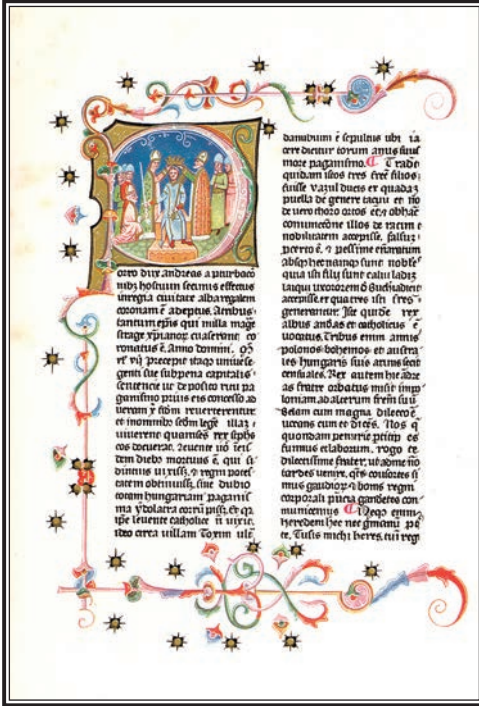 orro dux andreas a pturbacō
nibz hostium securus effectus
in regia civitate alba regalem
coronam ē adeptus. A tribus
tantum epīs qui in illa mage
strage xpianor euaserunt co
ronatus ē. Anno domini
precepit itaq uniuerse
genti sue sub pena capitalis
sentencie ut deposito ritu pa
ganismo prius eis concesso ad
ueram x fidem reuerterentur
et in omnibz scdm legem illaz
uiuerent quam scs rex stephs
eos docuerat. Leuente uō isrō
dem diebz mortuus ē, qui si
diutius uixissz, et regni potes
tatem obtinuissz, sine dubio
totam hungariam paganis
ma ydolatra corrupissz, Et qa
ipse leuente catholice n uixit,
ideo circa uillam Toxun ultra
danubium ē sepultus ubi ia
cere dicitur toxun auus suus
more paganismo. Trade
quidam istos tres frēs filios
fuisse Vazul ducis ex quadaz
puella de genere tatun et nō
de uero thoro ortos et obhanc
nobilitatem accepisse, falsum
pcerto ē, et pessime enarratum
absqz hoc namqz sunt nobiles
quia isti filij sunt calui ladizlai
qui uxorem
accepisse, ex qua tres isti frēs
generantur. Iste quidē rex
albus andās et catholicus ē
uocatus. Tribus enim annis
polonos bohemos et austra
les hungaris suis armis fecit
censuales. Rex autem hic andre
as fratre orbatus misit in po
loniam ad alterum frēm suū
Belam cum magna dilectōe
uocans eum et dicēs. Nos q
quondam penurie pticipes
fuimus et laborum, rogo te
dilectissime frater, ut ad me nō
tardes uenire, qtēs consortes si
mus gaudiorz et bonis regni
corporali pūcia gaudētes com
municemus. Neqz enim
heredem hēo nec gmanū p
te. Tu sis michi heres, tu in regnum